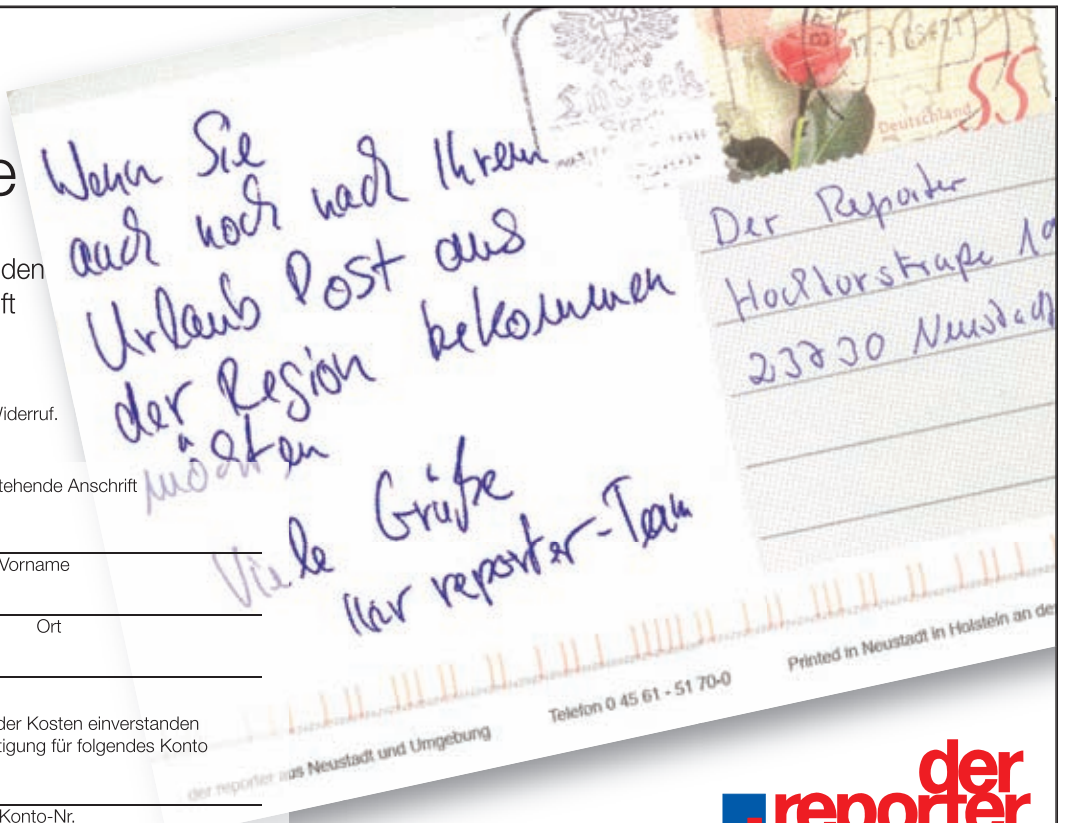 e
den
ft
Widerruf.
tehende Anschrift
Vorname
Ort
der Kosten einverstanden
tigung für folgendes Konto
Konto-Nr.
Wenn Sie
auch noch nach Ihrem
Urlaub Post aus
der Region bekommen
möchten
Viele Grüße
Ihr reporter-Team
Lübeck
Deutschland 55
Der Reporter
Hochtorstraße
23730 Neustadt
der reporter aus Neustadt und Umgebung
Telefon 0 45 61 - 51 70-0
Printed in Neustadt in Holstein an de
der
reporter